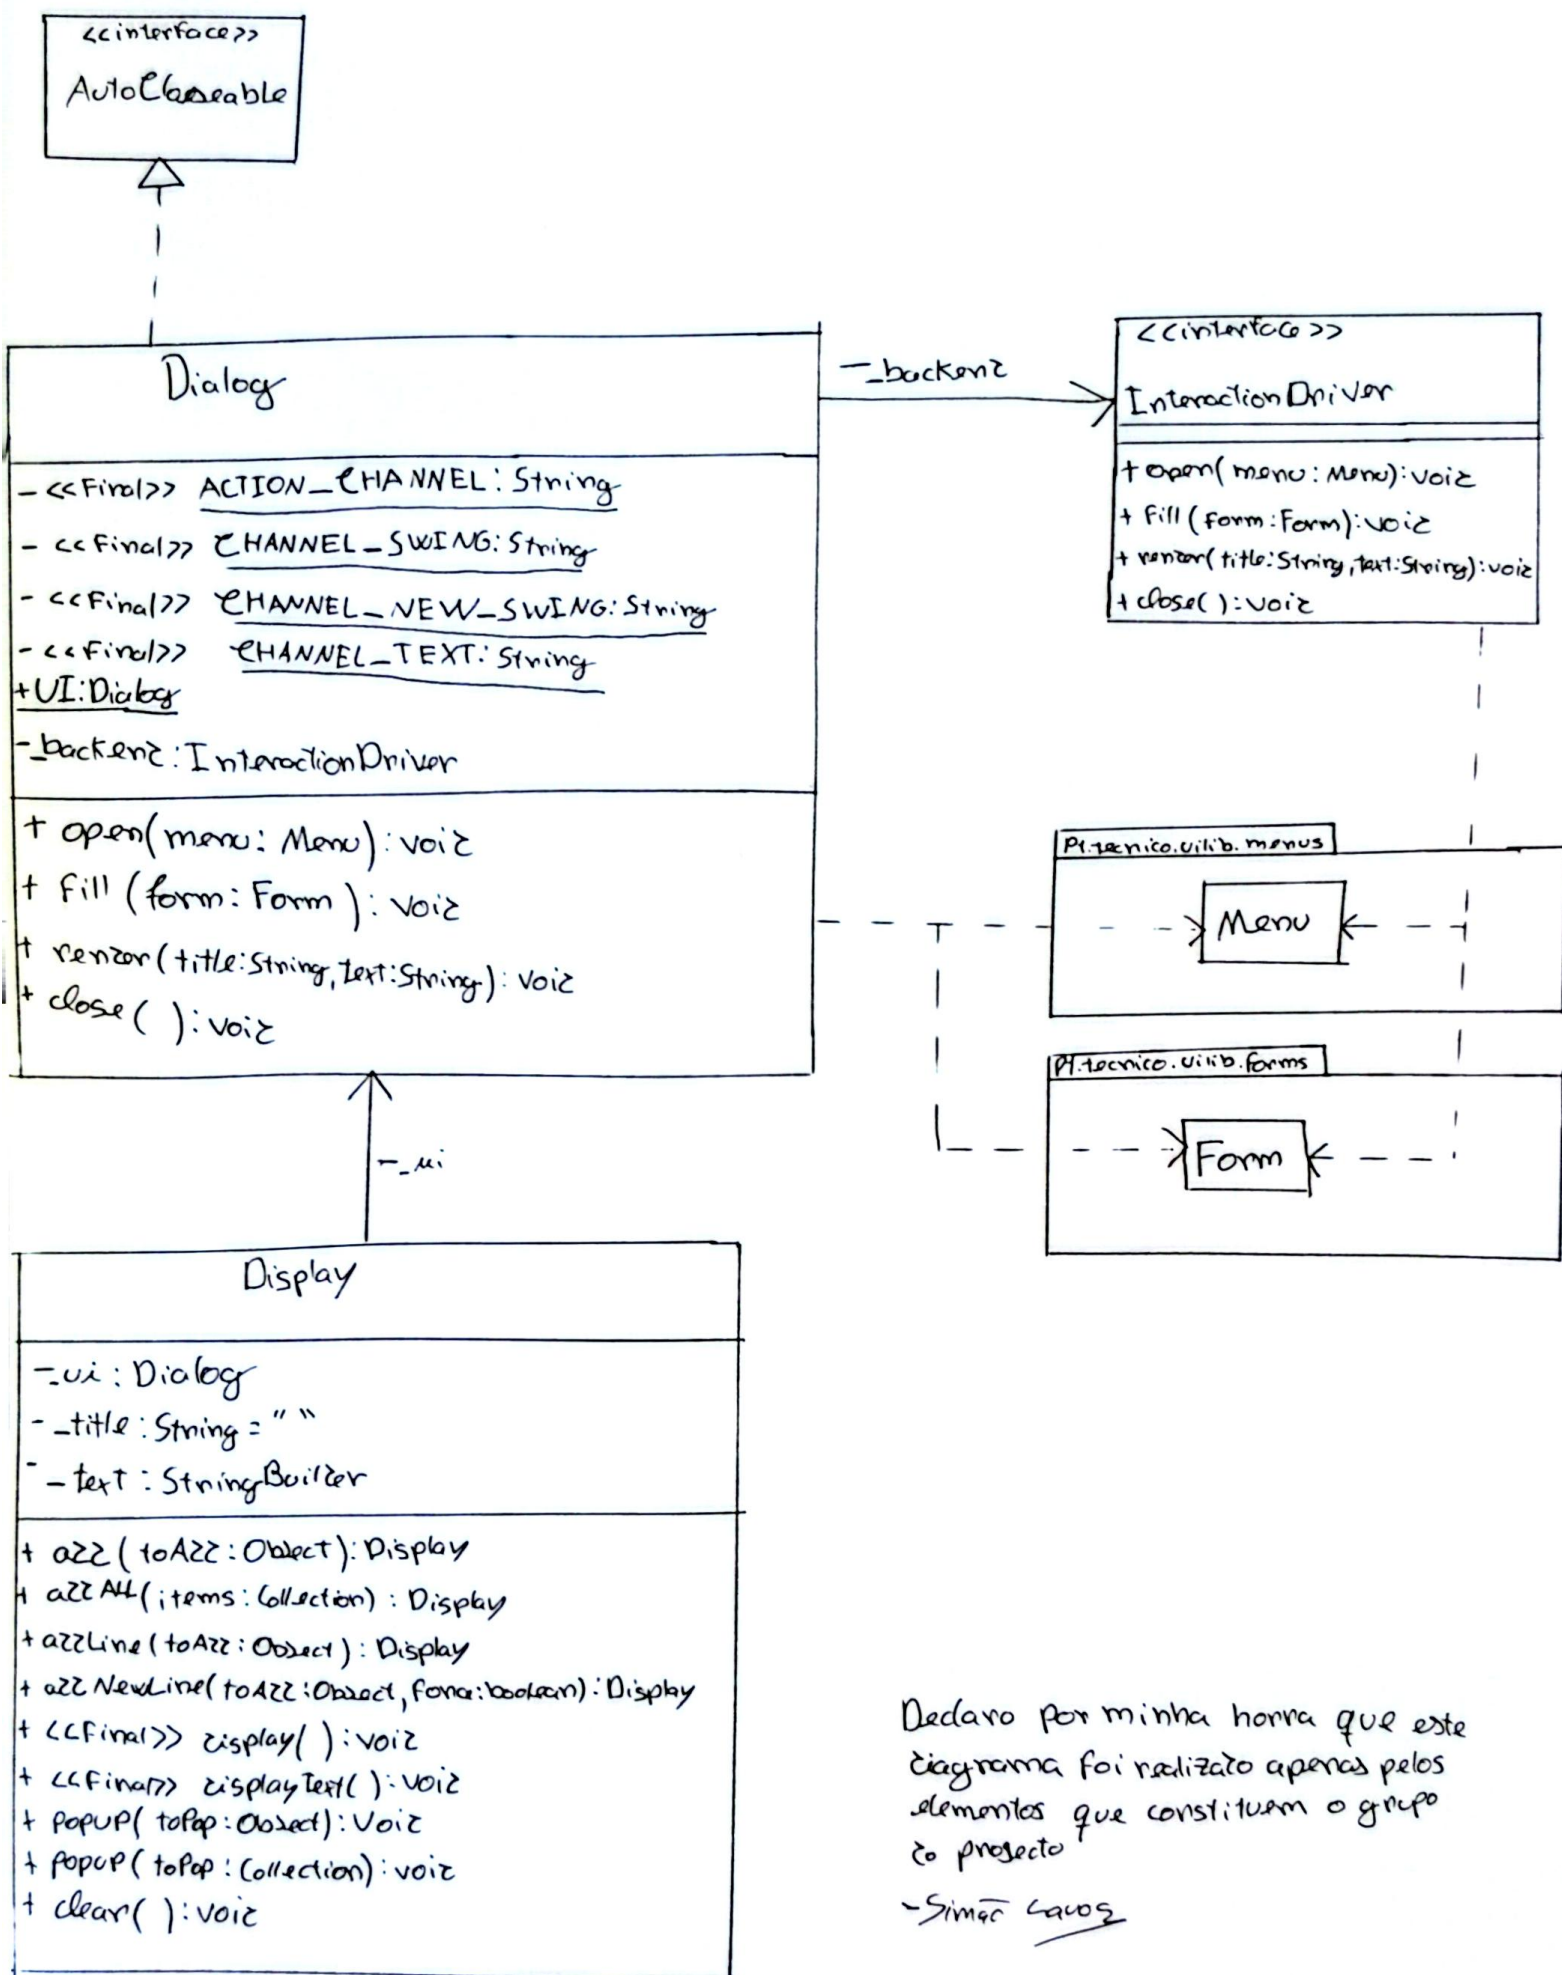 <<interface>>
AutoCloseable
Dialog
- <<Final>> ACTION_CHANNEL: String
- <<Final>> CHANNEL_SWING: String
- <<Final>> CHANNEL_NEW_SWING: String
- <<Final>> CHANNEL_TEXT: String
+UI: Dialog
-_backend: InteractionDriver
+ open(menu: Menu): void
+ fill (form: Form ): void
+ render(title:String, text:String): void
+ close( ): void
-_backend
<<interface>>
InteractionDriver
+ open( menu: Menu): void
+ fill (form: Form): void
+ render(title:String, text:String): void
+ close( ): void
pt.tecnico.uilib.menus
Menu
pt.tecnico.uilib.forms
Form
-_ui
Display
-_ui : Dialog
- _title : String = " "
- _text : StringBuilder
+ add ( toAdd : Object): Display
+ addAll(items: Collection) : Display
+ addLine (toAdd : Object) : Display
+ addNewLine( toAdd :Object, force:boolean): Display
+ <<Final>> display( ) : void
+ <<Final>> displayText( ): void
+ popup( toPop : Object): Void
+ popup( toPop : Collection): void
+ clear( ): void
Declaro por minha honra que este
diagrama foi realizado apenas pelos
elementos que constituem o grupo
do projecto
-Simão